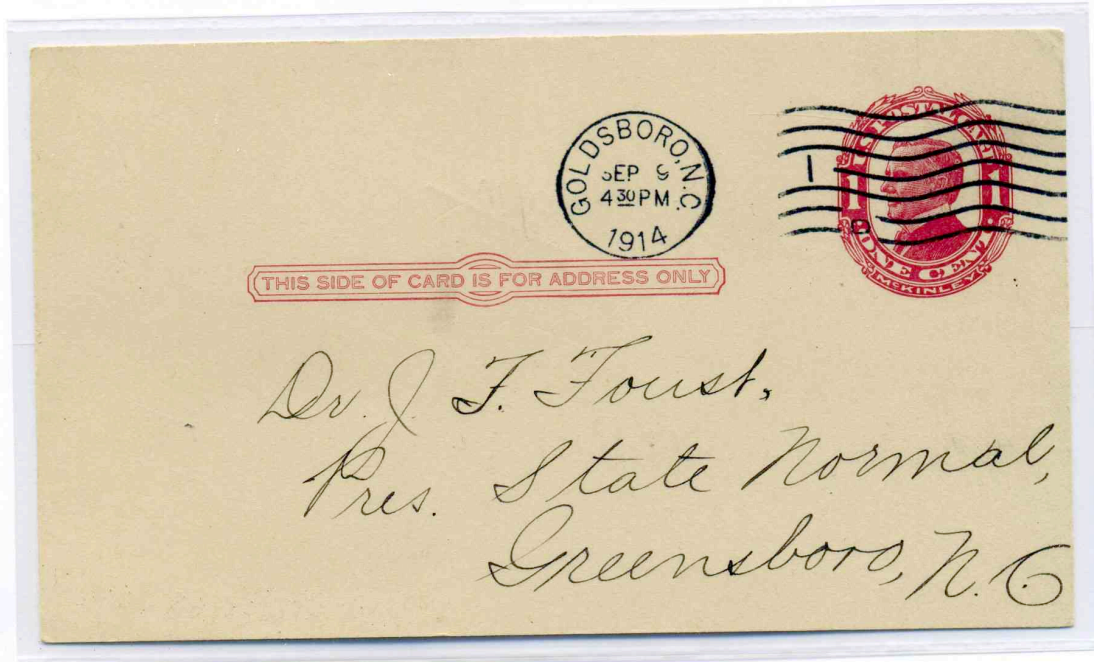 GOLDSBORO, N.C.
SEP 9
4 30 PM
1914
U.S. POSTAGE
1 1
ONE CENT
McKINLEY
THIS SIDE OF CARD IS FOR ADDRESS ONLY
Dr. J. F. Foust,
Pres. State Normal,
Greensboro, N.C.